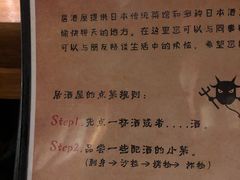 居酒屋提供日本传统菜馆和多种日本酒
愉快聊天的地方。在这里您可以与同事
可以与朋友畅谈生活中的烦恼。希望您
居酒屋的点菜规则：
Step1. 先点一杯酒或者....酒。
Step2. 品尝一些配酒的小菜。
（刺身→沙拉→烧物→炸物）